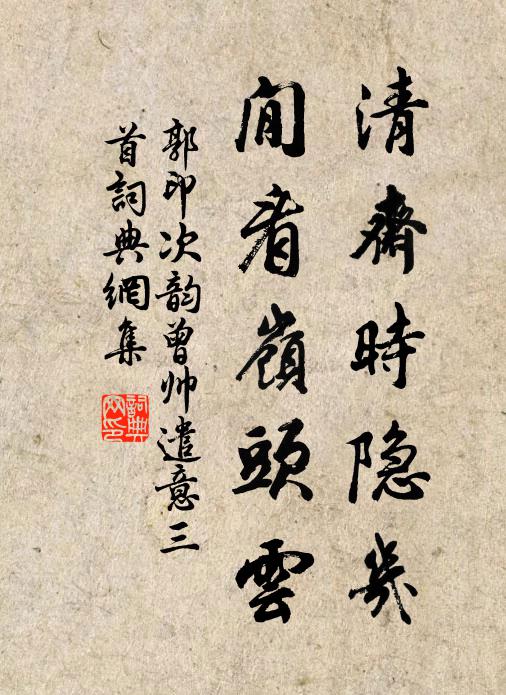 清齋時隐幾
閒看嶺頭雲
郭印次韵曾帅遣意三
首詞典網集
詞典网印